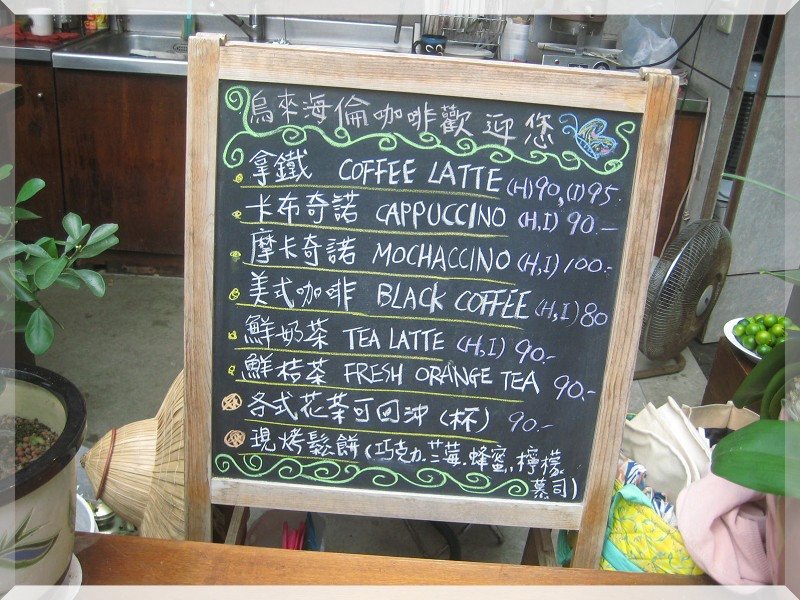 烏來海倫咖啡歡迎您
拿鐵 COFFEE LATTE (H)90,(I)95.
卡布奇諾 CAPPUCCINO (H,I) 90.-
摩卡奇諾 MOCHACCINO (H,I) 100.-
美式咖啡 BLACK COFFEE (H,I) 80
鮮奶茶 TEA LATTE (H,I) 90.-
鮮桔茶 FRESH ORANGE TEA 90.-
各式花茶可回沖(杯) 90.-
現烤鬆餅(巧克力.蘭莓.蜂蜜.檸檬.
慕司)